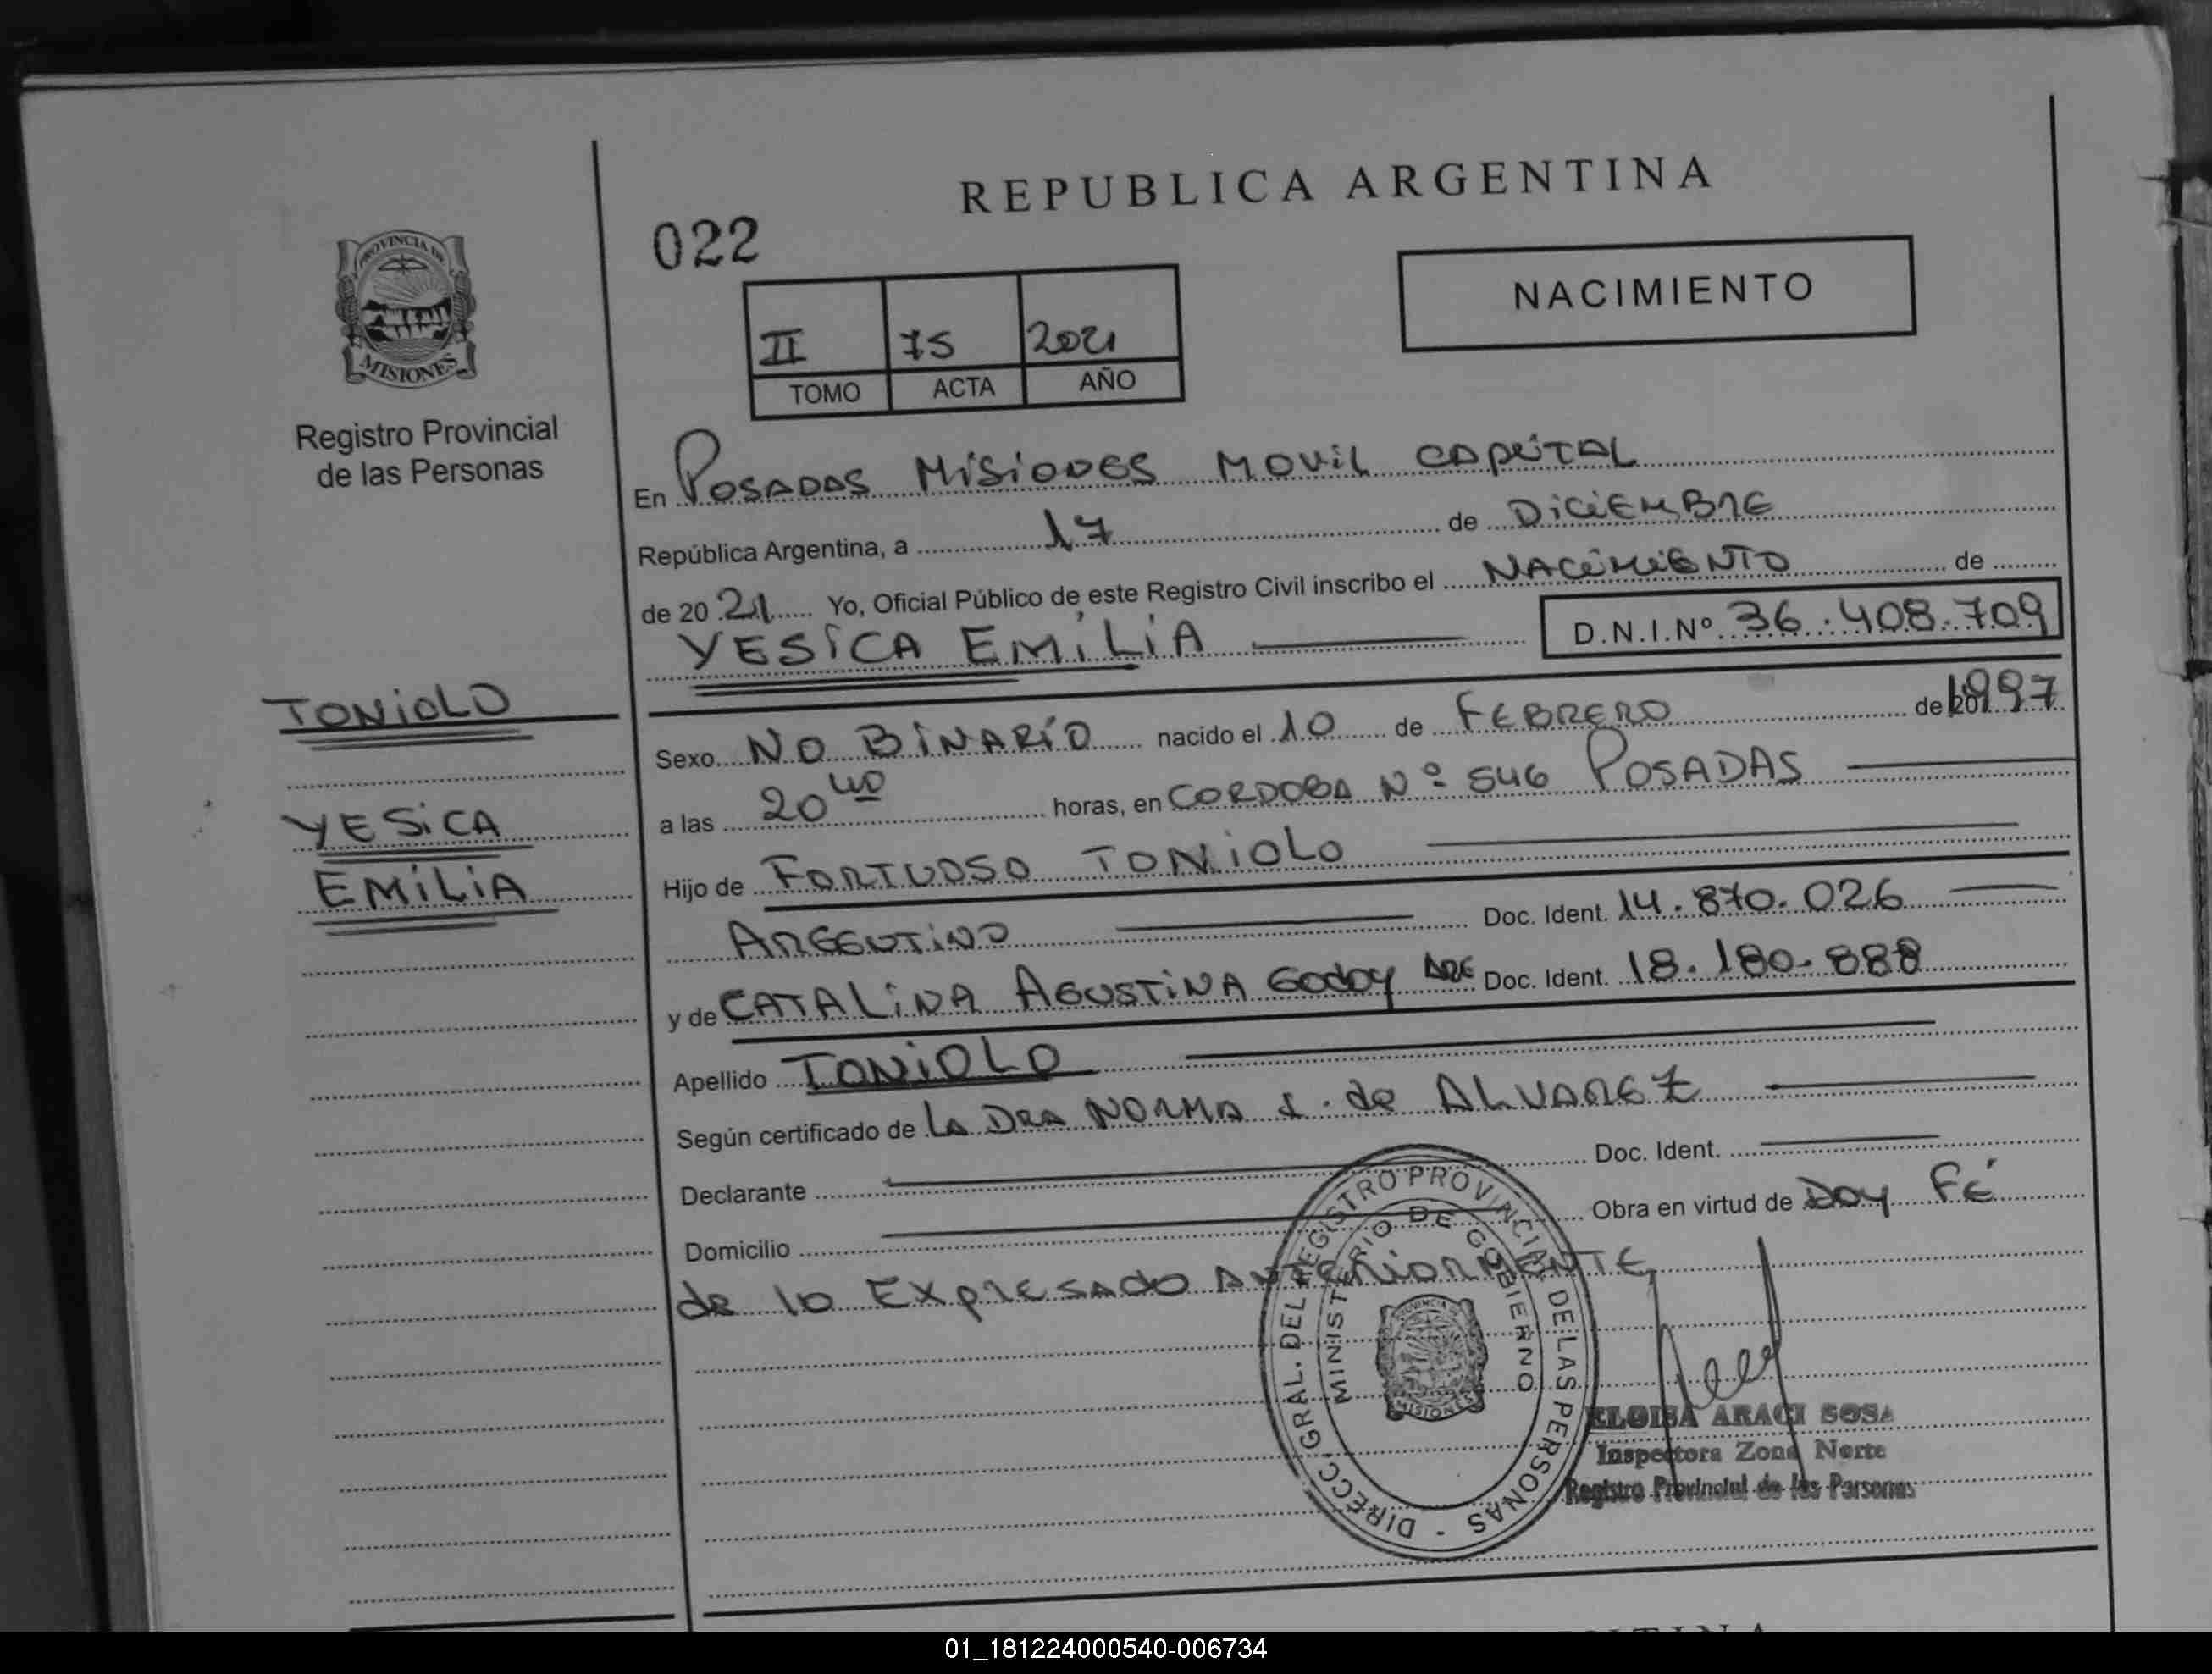 REPUBLICA ARGENTINA
022
NACIMIENTO
II 75 2021
TOMO ACTA AÑO
PROVINCIA DE
MISIONES
Registro Provincial
de las Personas
En POSADAS MISIONES MOVIL CAPITAL
República Argentina, a 17 de DICIEMBRE
de 2021 Yo, Oficial Público de este Registro Civil inscribo el NACIMIENTO de
YESICA EMILIA D.N.I.Nº 36.408.709
TONIOLO
YESICA
EMILIA
Sexo NO BINARIO nacido el 10 de FEBRERO de 1997
a las 20 40 horas, en CORDOBA Nº 546 POSADAS
Hijo de FORTUOSO TONIOLO
ARGENTINO Doc. Ident. 14.870.026
y de CATALINA AGUSTINA GODOY ARG Doc. Ident. 18.180.888
Apellido TONIOLO
Según certificado de LA DRA NORMA de ALVAREZ
Declarante Doc. Ident.
Domicilio Obra en virtud de DOY FÉ
de lo EXPRESADO ANTERIORMENTE
DIRECC. GRAL. DEL REGISTRO PROVINCIAL DE LAS PERSONAS -
MINISTERIO DE GOBIERNO
PROVINCIA DE
MISIONES
ELOISA ARACI SOSA
Inspectora Zona Norte
Registro Provincial de las Personas
01_181224000540-006734